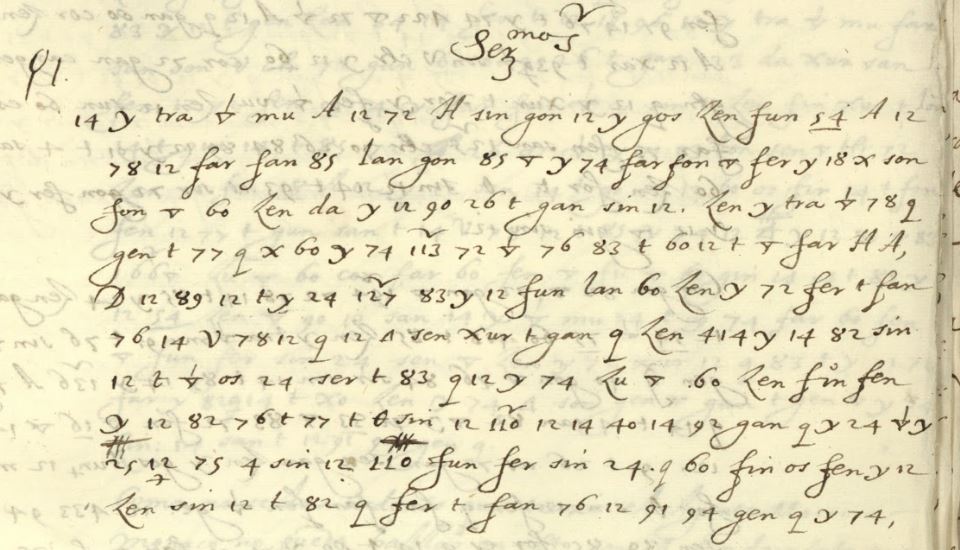 Ser mos
14 y tra mu A 12 72 H sin gon 12 y gos Len fun 54 A 12
78 12 far fan 85 lan gon 85 y 74 far fon fer y 18 x son
fon 60 Len da y 12 90 26 t gan sin 12. Len y tra 78 q
gen t 77 q x 60 y 74 113 72 76 83 t 60 12 t far H A,
D 12 89 12 t y 24 127 83 y 12 fun lan 60 Len y 72 fer t fan
76 14 V 78 12 q 12 sen xur t gan q Len 414 y 14 82 sin
12 t os 24 ser t 83 q 12 y 74 Lu 60 Len fin fen
y 12 82 76 t 77 t sin 12 110 12 14 40 14 92 gan q y 24 y
25 12 75 4 sin 12 110 fun fer sin 24. q 60 fin os fen y 12
Len sin 12 t 82. q fer t fan 76 12 91 94 gen q y 74,